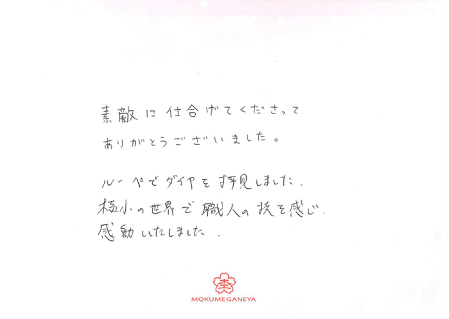 素敵に仕合げてくださって
ありがとうございました。
ルーペでダイヤを拝見しました.
極小の世界で職人の技を感じ.
感動いたしました.
MOKUMEGANEYA